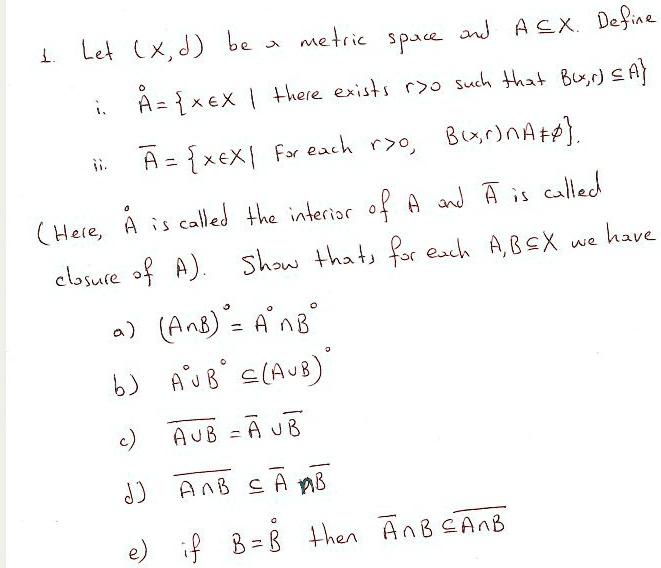 1. Let (X,d) be a metric space and A ⊆ X. Define
i. Å = {x∈X | there exists r>0 such that B(x,r) ⊆ A}
ii. A̅ = {x∈X | For each r>0, B(x,r)∩A ≠ ∅}.
(Here, Å is called the interior of A and A̅ is called
closure of A). Show that, for each A,B⊆X we have
a) (A∩B)° = A° ∩ B°
b) A° ∪ B° ⊆ (A∪B)°
c) \overline{A∪B} = A̅ ∪ B̅
d) \overline{A∩B} ⊆ A̅ ∩ B̅
e) if B = B̊ then A̅∩B ⊆ \overline{A∩B}